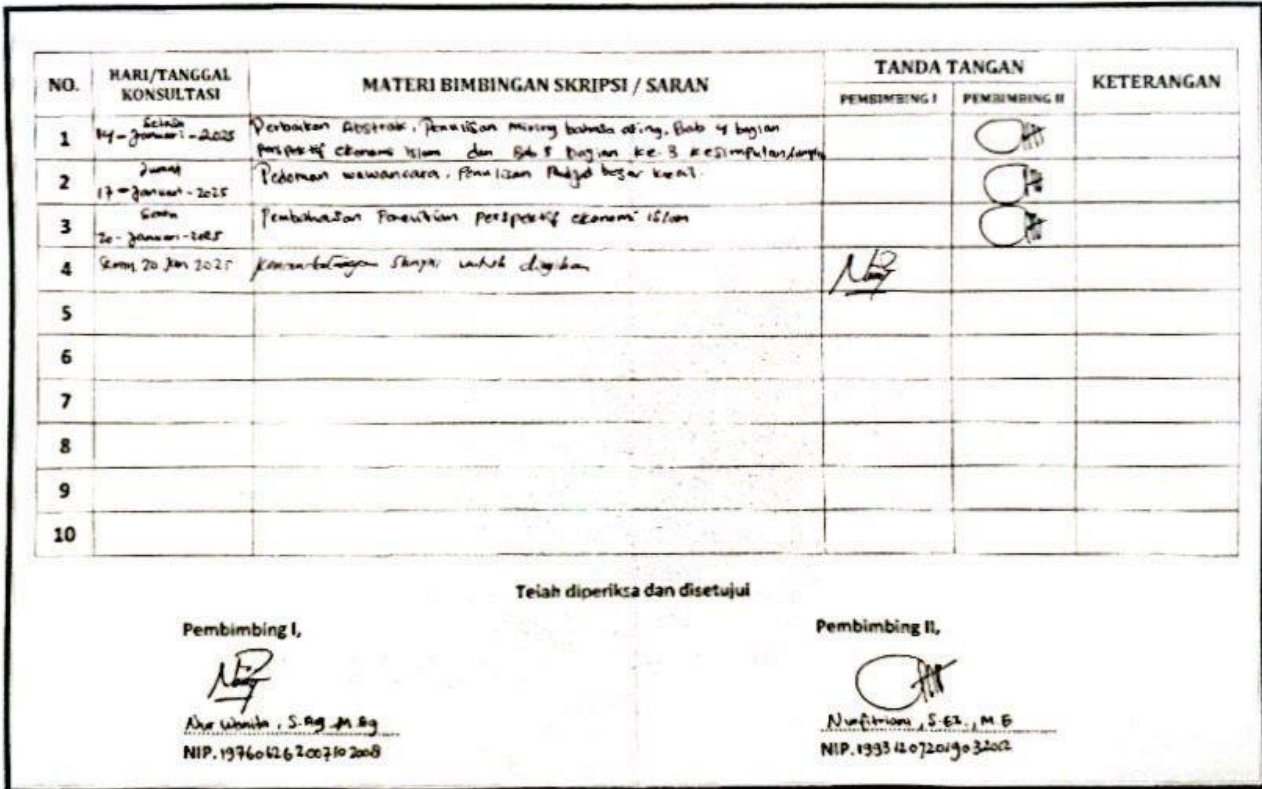 NO. HARI/TANGGAL KONSULTASI MATERI BIMBINGAN SKRIPSI / SARAN TANDA TANGAN KETERANGAN
PEMBIMBING I PEMBIMBING II
1 Selasa 14-Januari-2025 Perbaikan Abstrak, Penulisan miring bahasa asing, Bab 4 bagian
perspektif ekonomi islam dan Bab 5 bagian ke 3 kesimpulan,
2 Jumat 17-Januari-2025 Pedoman wawancara, Penulisan besar kecil.
3 Senin 20-Januari-2025 Pembahasan Penelitian perspektif ekonomi islam
4 Senin, 20 Jan 2025 Skripsi untuk diujikan
5
6
7
8
9
10
Telah diperiksa dan disetujui
Pembimbing I,
Pembimbing II,
Nur Wanita, S.Ag M.Ag
NIP. 197606262007102008
Nurfitriani, S.EI., M.E
NIP. 199312072019032012